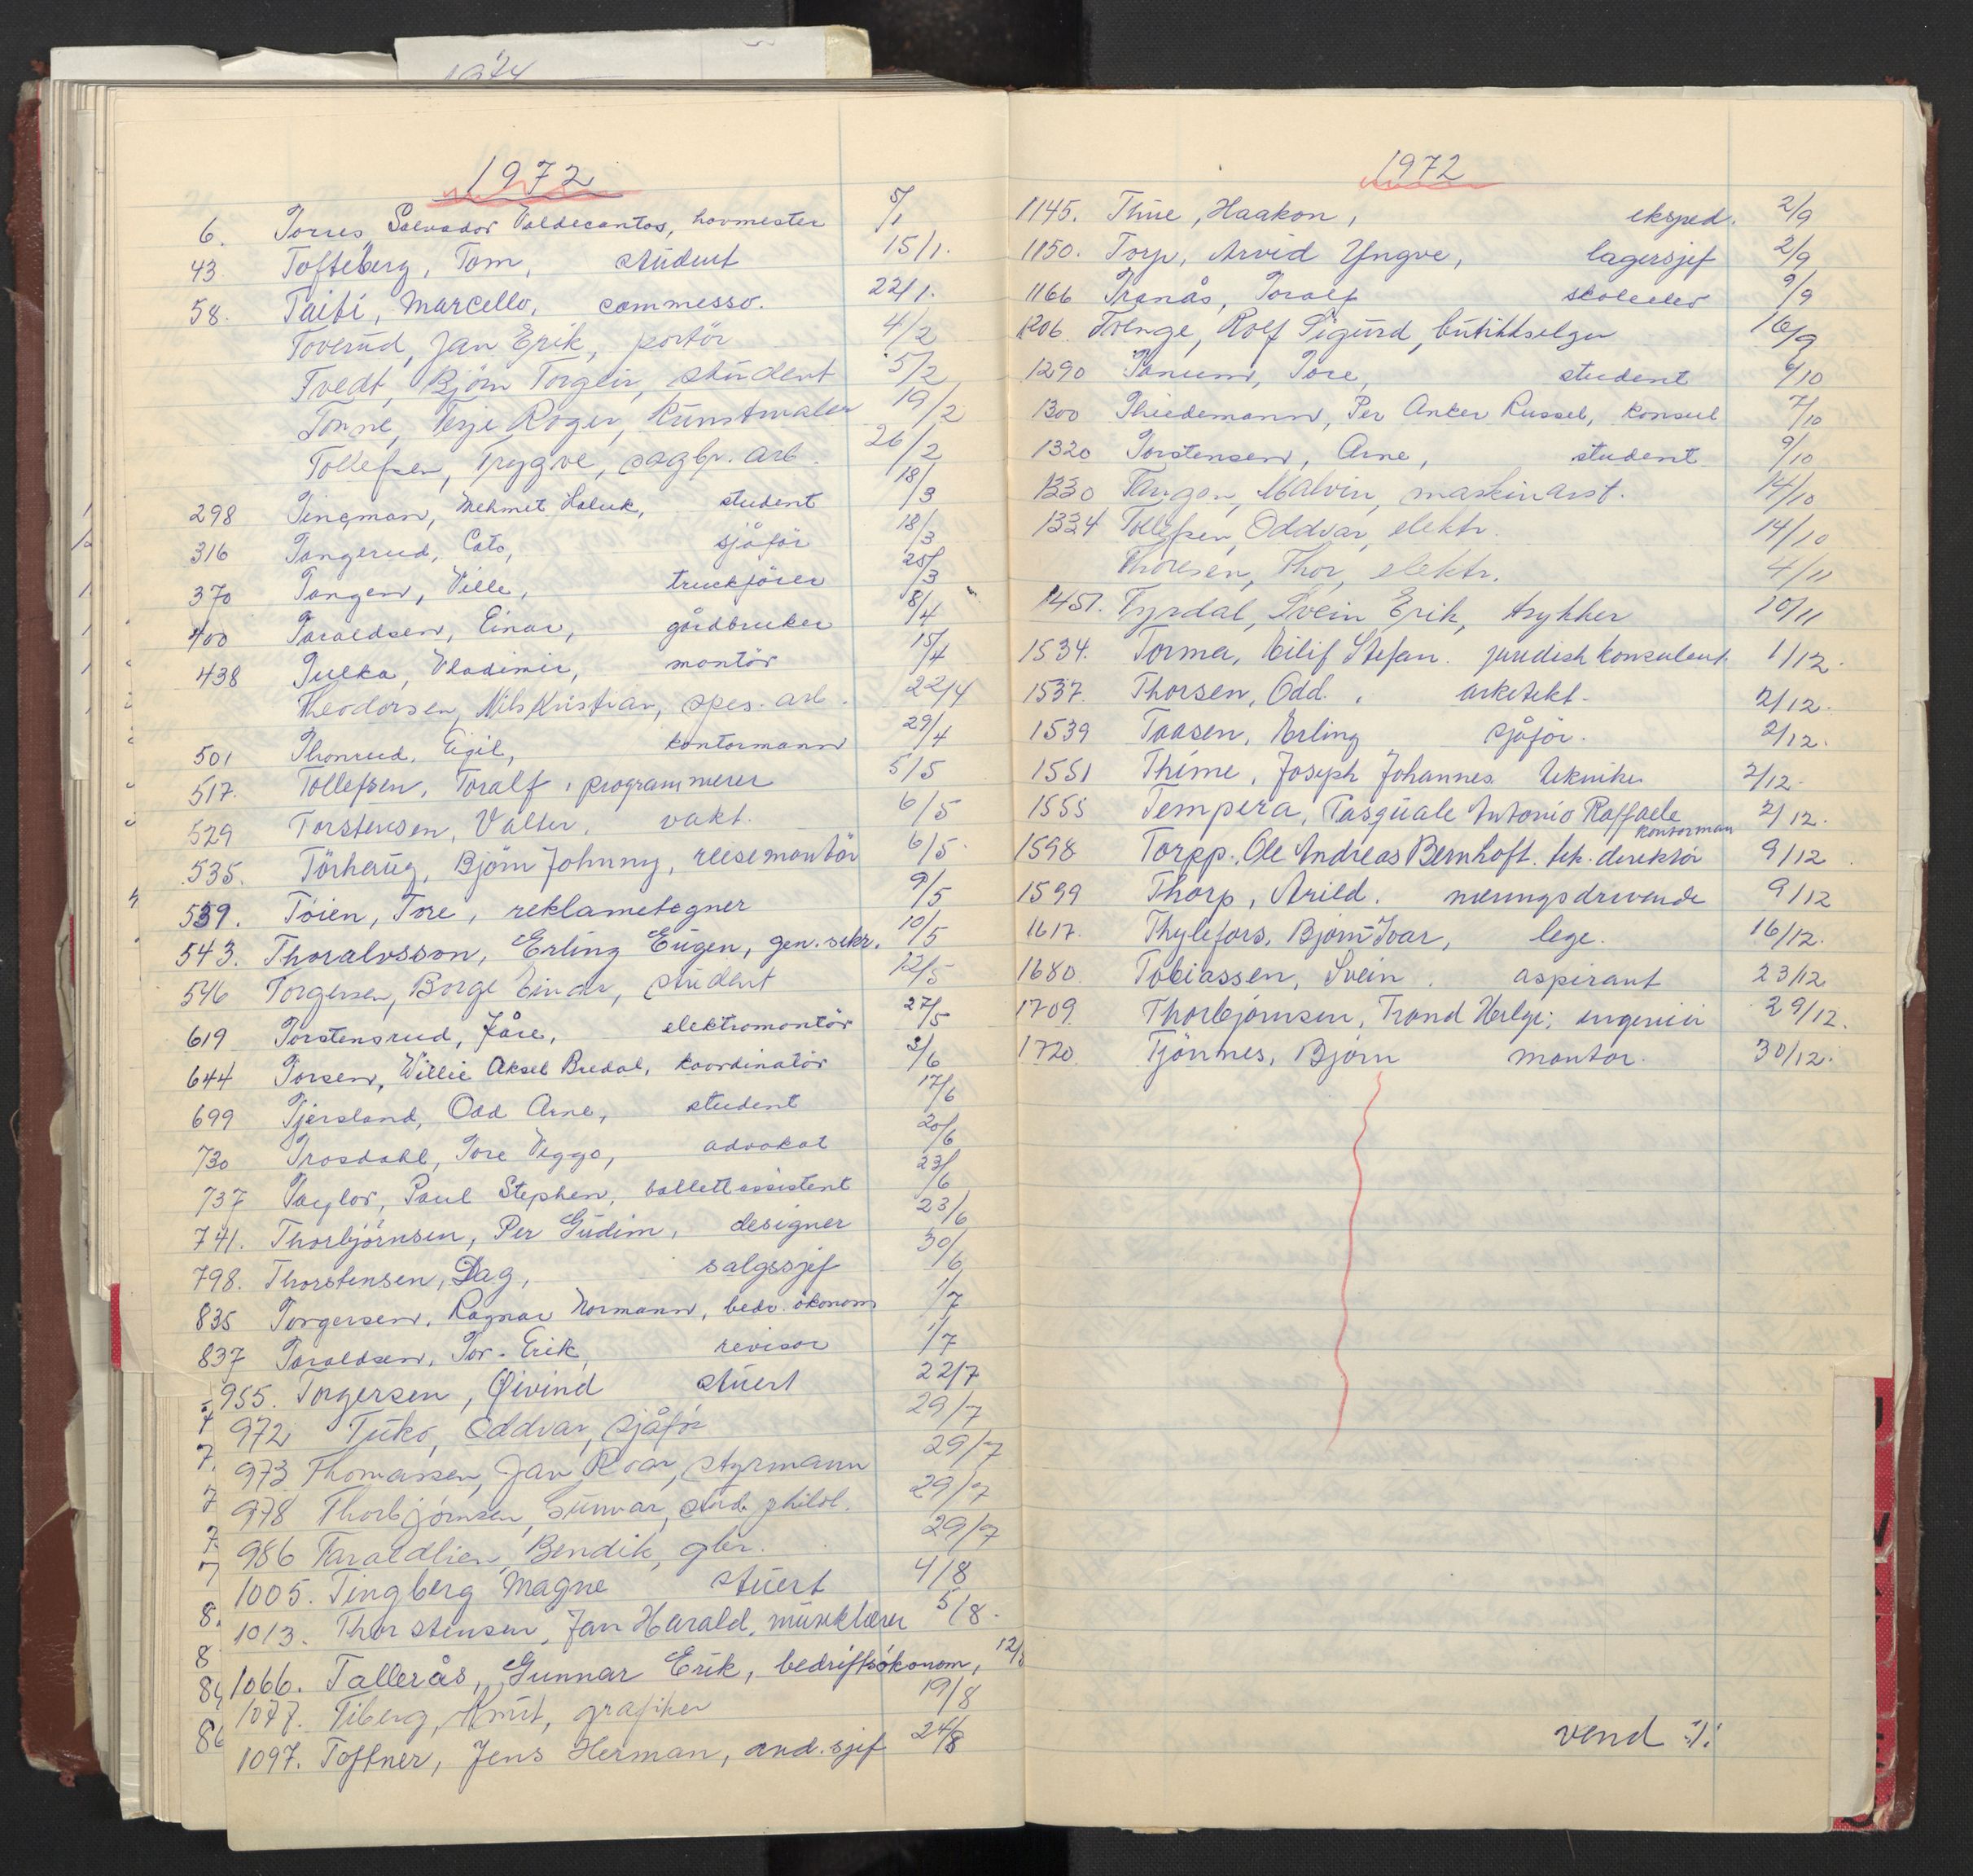 1974
1972
6. Torres Salvador Valdecantos, hovmester 5/1
43. Tofteberg, Tom, student 15/1.
58. Taiti, Marcello, commesso. 22/1.
Toverud, Jan Erik, portör 4/2
Tvedt, Björn Torgeir, student 5/2
Tonne, Terje Roger, kunstmaler 19/2
Tollefsen, Trygve, sagbr. arb. 26/2
298 Tingman, Mehmet Haluk, student 18/3
316 Tangerud, Cato, sjåför 18/3
370 Tangen, Ville, truckförer 25/3
400 Taraldsen, Einar, gårdbruker 8/4
438 Tulka, Vladimir, montör 15/4
Theodorsen, Nils Kristian, spes. arb. 22/4
501 Thonrud, Eigil, kontormann 29/4
517. Tollefsen, Toralf, programmerer 5/5
529 Torstensen, Valter, vakt. 6/5
535. Törhaug, Björn Johnny, reisemontör 6/5
539. Töien, Tore, reklametegner 9/5
543. Thoralvsson, Erling Eugen, gen. sekr. 10/5
546 Torgersen, Borge Einar, student 12/5
619 Torstensrud, Kåre, elektromontör 27/5
644 Torsen, Willie Aksel Bredal, koordinatör 3/6
699 Tjersland, Odd Arne, student 17/6
730 Trosdahl, Tore Viggo, advokat 20/6
737 Taylor, Paul Stephen, ballettassistent 23/6
741. Thorbjörnsen, Per Gudim, designer 23/6
798. Thorstensen, Dag, salgssjef 30/6
835 Torgersen, Ragnar Normann, bedr. ökonom 1/7
837 Taraldsen, Tor-Erik, revisor 1/7
955. Torgersen, Øivind stuert 22/7
972 Tuko, Oddvar, sjåför 29/7
973 Thomassen, Jan Roar, styrmann 29/7
978 Thorbjörnsen, Gunvar, stud. philol. 29/7
986 Taraldlien, Bendik, gbr. 29/7
1005. Tingberg Magne stuert 4/8
1013. Thorstensen, Jan Harald, musiklærer 5/8.
1066. Tallerås, Gunnar Erik, bedriftsökonom, 12/8
1077. Tiberg, Knut, grafiker 19/8
1097. Toftner, Jens Herman, avd. sjef 24/8
1972
1145. Thue, Haakon, eksped. 2/9
1150. Torp, Arvid Yngve, lagersjef 2/9
1166 Tranås, Toralf skoleelev 9/9
1206. Tvenge, Rolf Sigurd, butikkselger 16/9
1290 Tanum, Tore, student 6/10
1300 Thiedemann, Per Anker Russel, konsul 7/10
1320 Torstensen, Arne, student 9/10
1330 Tangen, Malvin, maskinarb. 14/10
1334 Tollefsen, Oddvar, elektr. 14/10
Thoresen, Thor, elektr. 4/11
1451. Tyrdal, Svein Erik, trykker 10/11
1534. Torma, Eilif Stefan. juridisk konsulent. 1/12.
1537. Thorsen, Odd, arkitekt. 2/12.
1539 Taasen, Erling sjåför. 2/12.
1551 Thime, Joseph Johannes tekniker 2/12.
1555 Tempera, Pasquale Antonio Raffaele 2/12.
kontorman
1598 Torpp, Ole Andreas Bernhoft. tek. direktör 9/12.
1599 Thorp, Arild. næringsdrivende 9/12
1617. Thylefors, Björn-Ivar, lege. 16/12.
1680. Tobiassen, Svein. aspirant 23/12
1709. Thorbjörnsen, Trond Helge; ingeniör 29/12.
1720. Tjönnes, Björn montör. 30/12.
vend ·/.